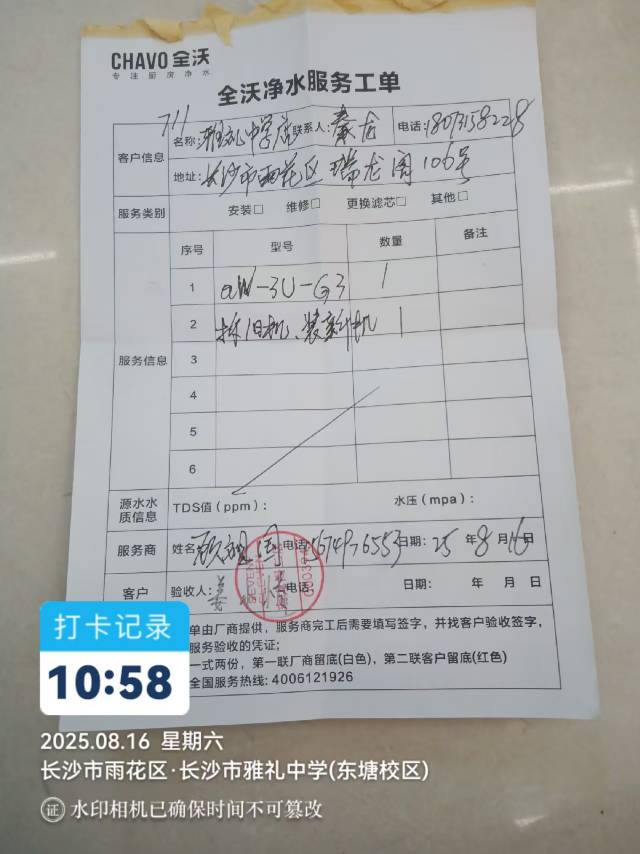 CHAVO 全沃
专注厨房净水
全沃净水服务工单
711
客户信息
名称: 雅礼中学店 联系人: 秦龙 电话: 18073158228
地址: 长沙市雨花区 瑞龙阁106号
服务类别 安装□ 维修□ 更换滤芯□ 其他□
服务信息
序号 型号 数量 备注
1 aW-3U-G3 1
2 拆旧机、装新机 1
3
4
5
6
源水水质信息 TDS值(ppm): 水压(mpa):
服务商 姓名 电话 日期: 25年8月16日
客户 验收人: 电话: 日期: 年 月 日
单由厂商提供，服务商完工后需要填写签字，并找客户验收签字，
服务验收的凭证;
一式两份，第一联厂商留底(白色)，第二联客户留底(红色)
全国服务热线: 4006121926
打卡记录
10:58
2025.08.16 星期六
长沙市雨花区·长沙市雅礼中学(东塘校区)
证 水印相机已确保时间不可篡改